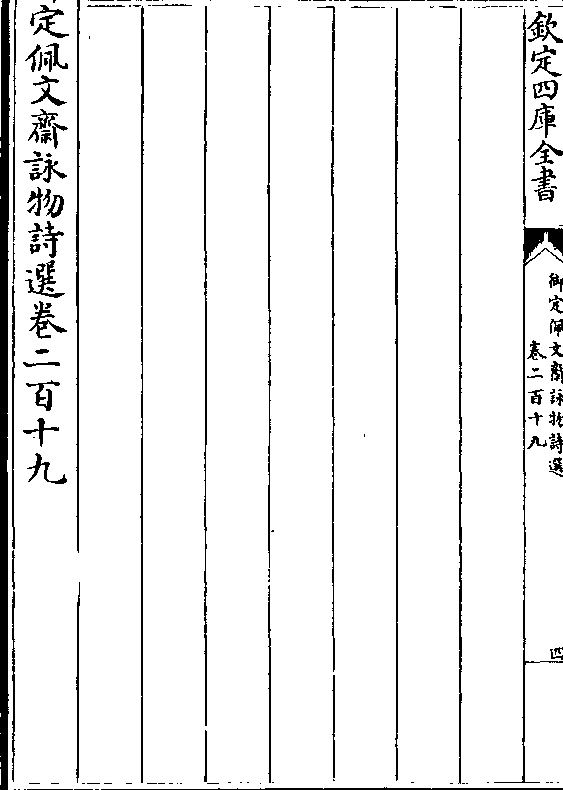 欽定四庫全書
御定佩文齋詠物詩選
卷二百十九
四
定佩文齋詠物詩選卷二百十九